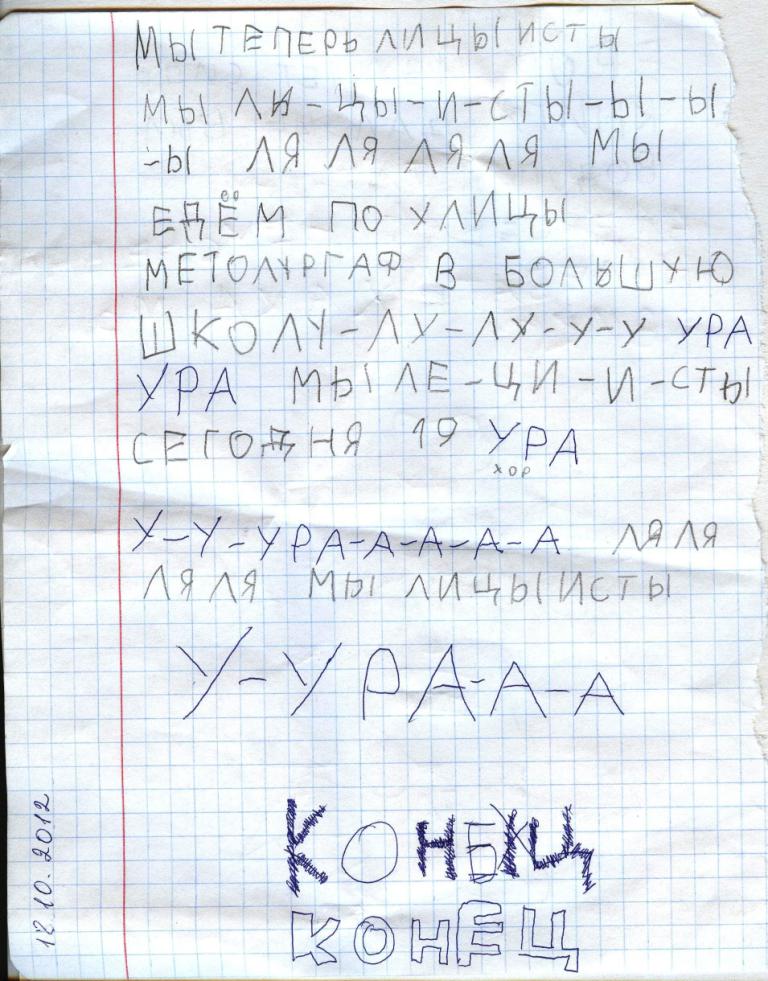 МЫ ТЕПЕРЬ ЛИЦЫИСТЫ
МЫ ЛИ-ЦЫ-И-СТЫ-Ы-Ы
-Ы ЛЯ ЛЯ ЛЯ ЛЯ МЫ
ЕДЁМ ПО УЛИЦЫ
МЕТОЛУРГАФ В БОЛЬШУЮ
ШКОЛУ-ЛУ-ЛУ-У-У УРА
УРА МЫ ЛЕ-ЦИ-И-СТЫ
СЕГОДНЯ 19 УРА
хор
У-У-УРА-А-А-А-А ЛЯ ЛЯ
ЛЯ ЛЯ МЫ ЛИЦЫИСТЫ
У-УРА-А-А
КОНЕЦ
КОНЕЦ
12.10.2012